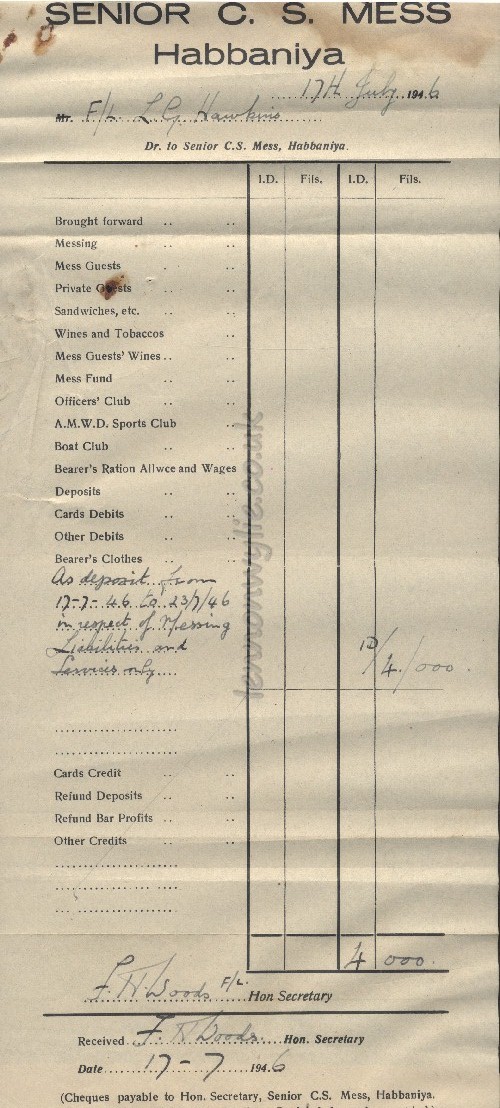 SENIOR C. S. MESS
Habbaniya
17th July 1946
Mr. F/L L G Hawkins
Dr. to Senior C.S. Mess, Habbaniya.
I.D. Fils. I.D. Fils.
Brought forward .. ..
Messing .. ..
Mess Guests . ..
Private Guests .. ..
Sandwiches, etc. .. ..
Wines and Tobaccos ..
Mess Guests' Wines .. ..
Mess Fund .. ..
Officers' Club .. ..
A.M.W.D. Sports Club ..
Boat Club .. ..
Bearer's Ration Allwce and Wages
Deposits .. ..
Cards Debits .. ..
Other Debits .. ..
Bearer's Clothes .. ..
As deposit from
17-7-46 to 23/7/46
in respect of Messing
Liabilities and
Services only
ID/4/000.
Cards Credit .. ..
Refund Deposits .. ..
Refund Bar Profits .. ..
Other Credits .. ..
4 000.
F. H. Woods F/L. Hon Secretary
Received F. H Woods Hon. Secretary
Date 17-7 1946
(Cheques payable to Hon. Secretary, Senior C.S. Mess, Habbaniya.
lennonwylie.co.uk